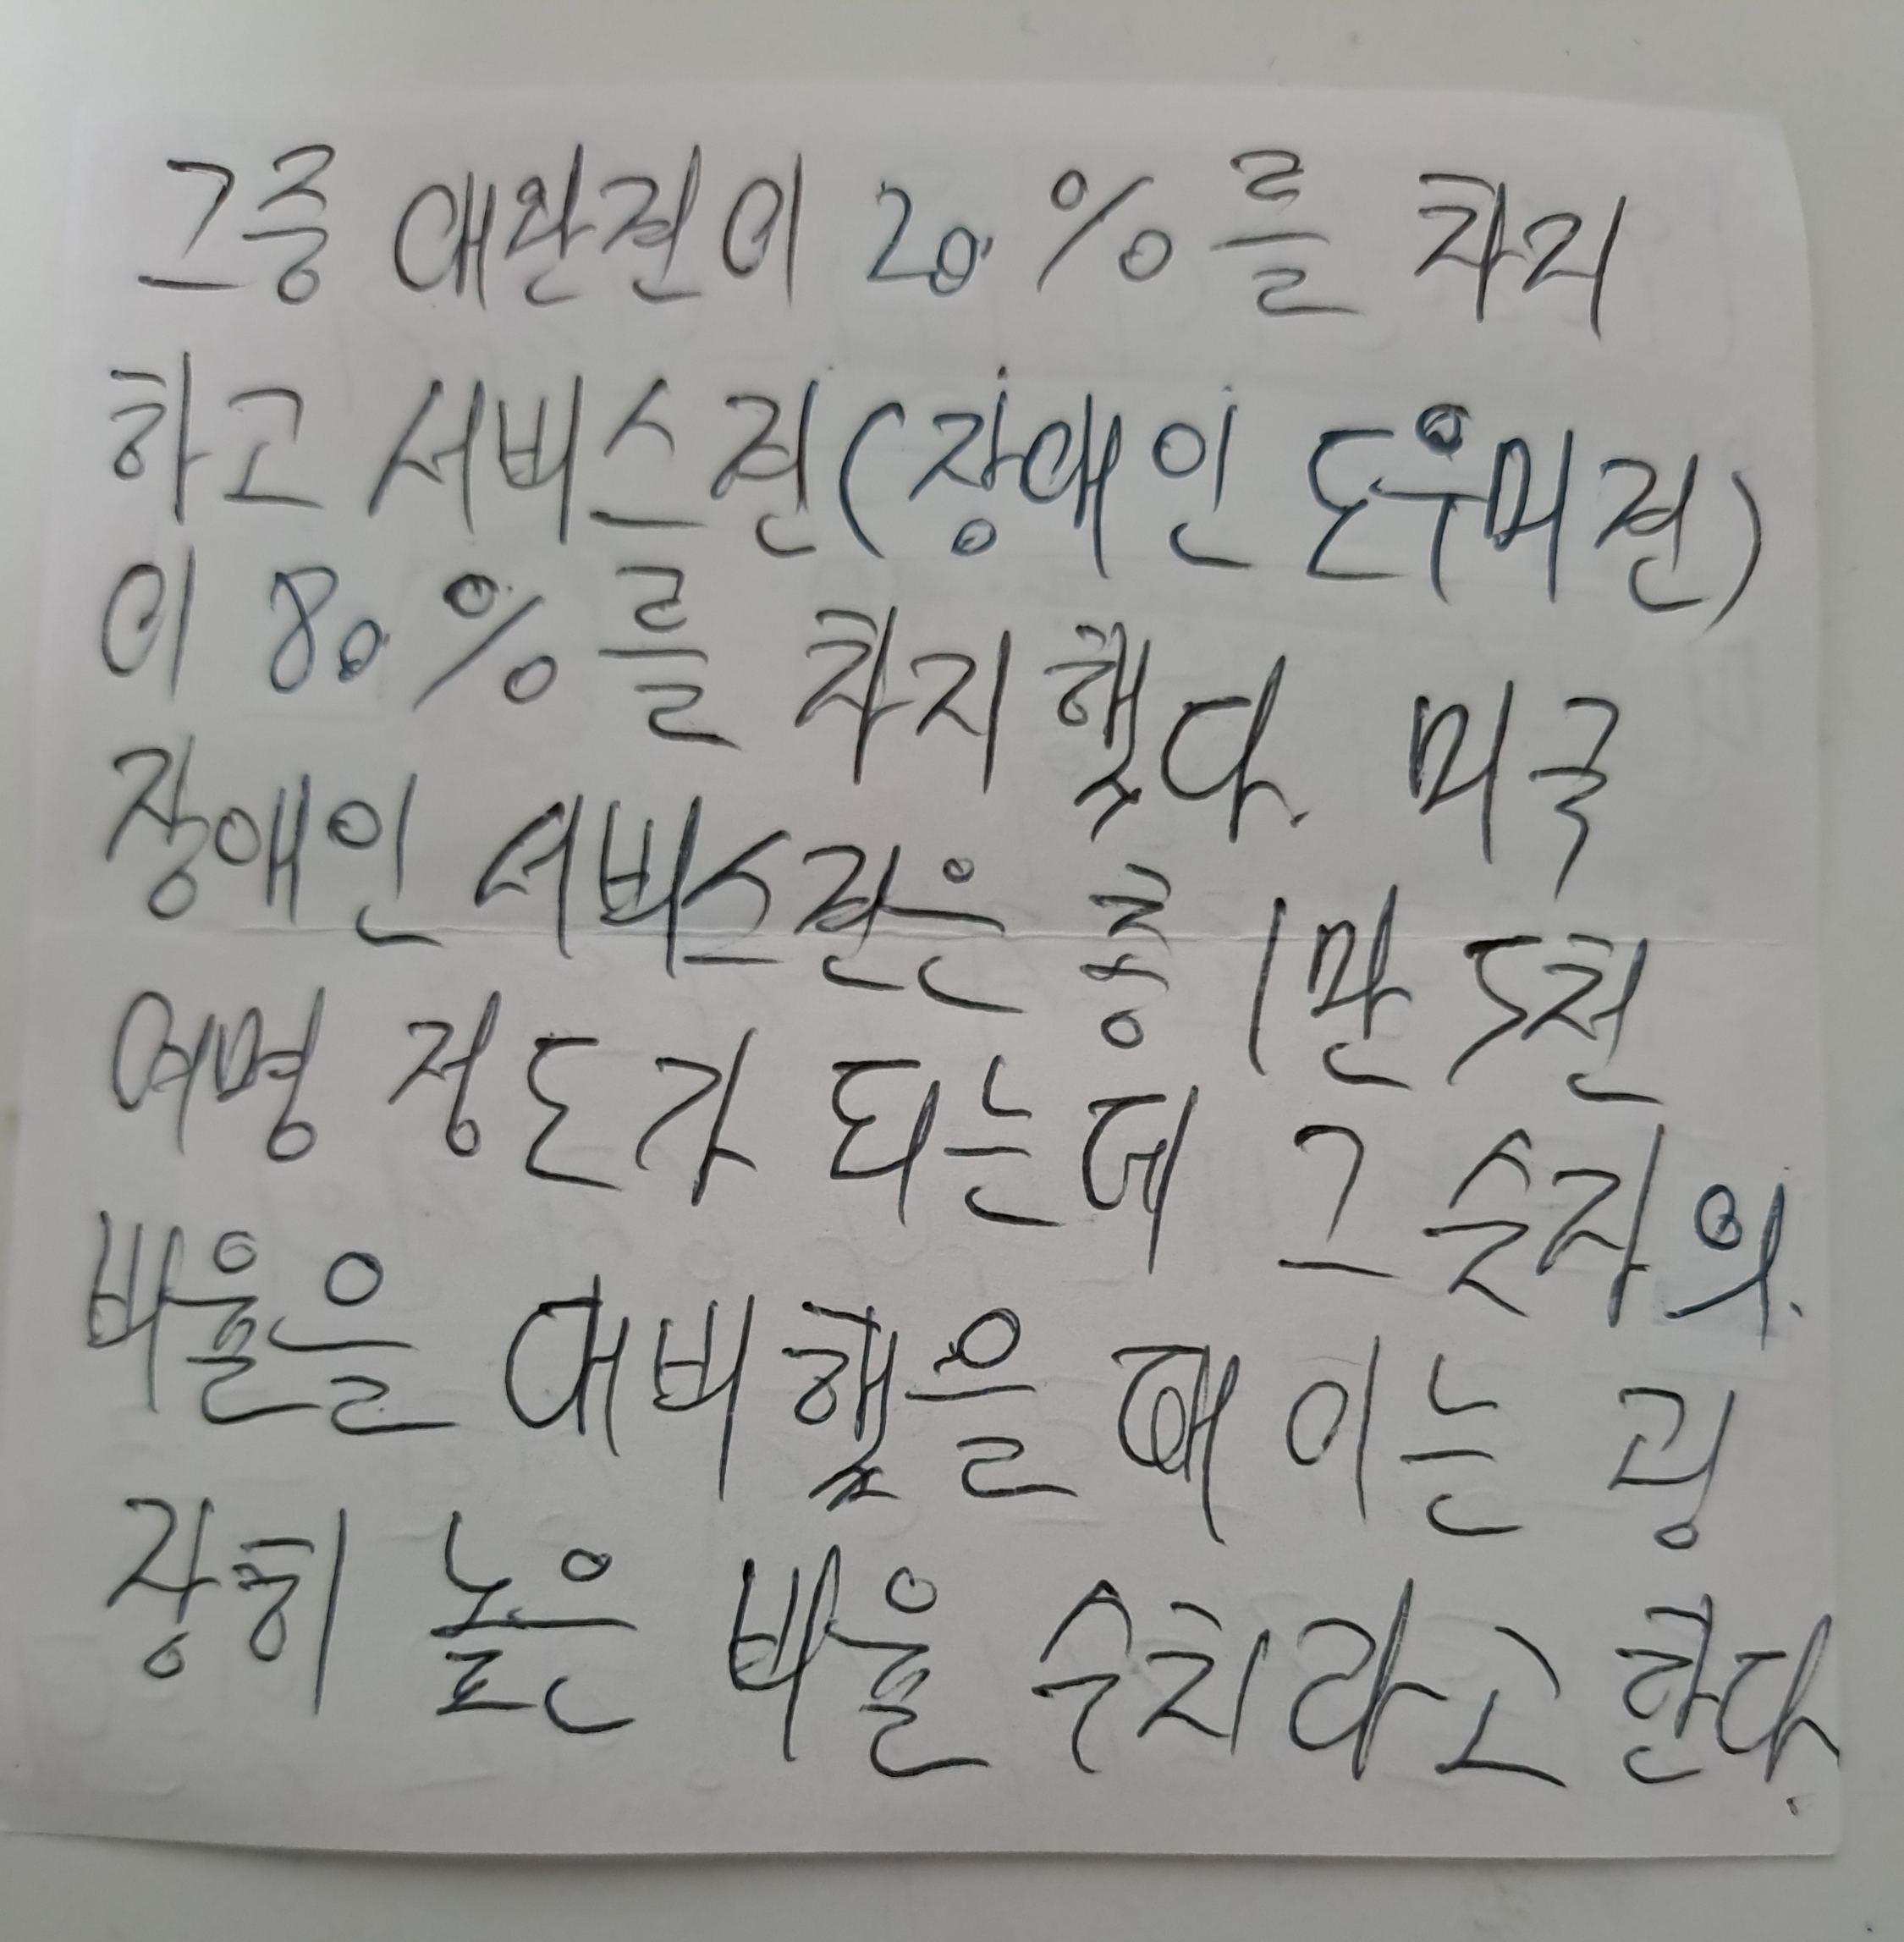 그중 애완견이 20%를 차지
하고 서비스견(장애인 도우미견)
이 80%를 차지했다. 미국
장애인 서비스견은 총 1만 5천
여명 정도가 되는데 그 숫자의
비율을 대비했을 때 이는 굉
장히 높은 비율 수치라고 한다.